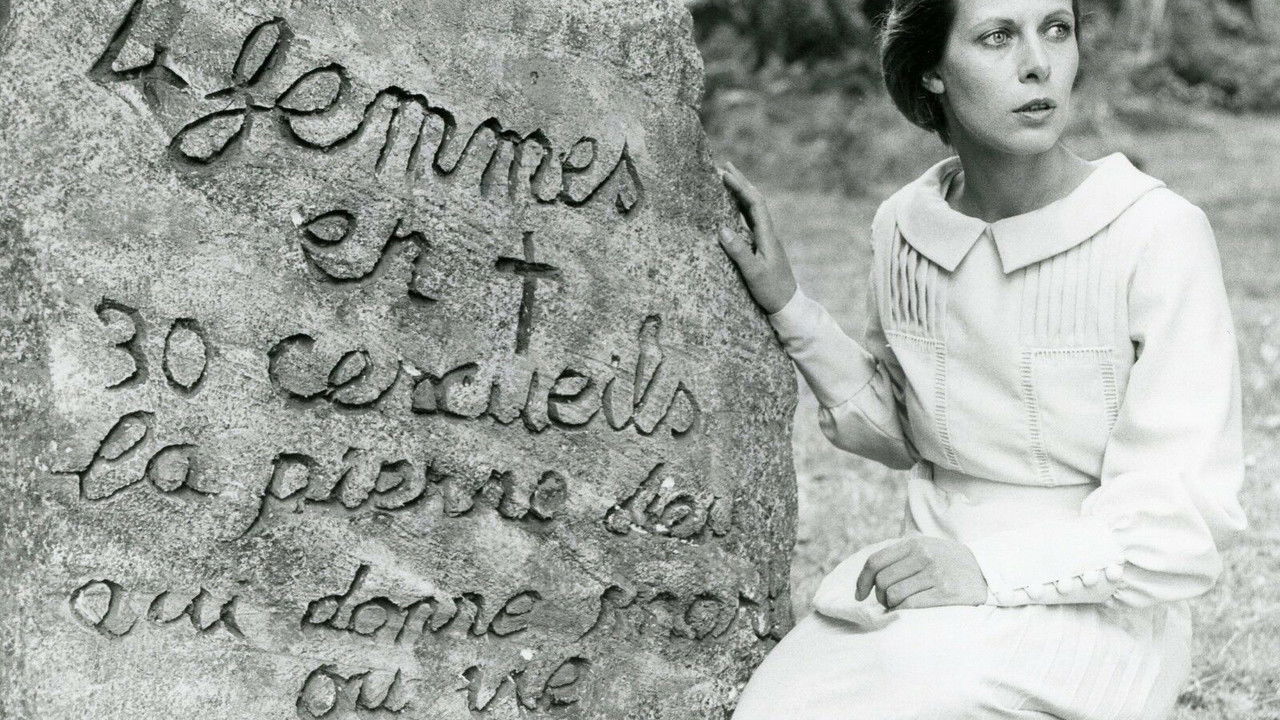 4 femmes
en †
30 cercueils
la pierre dieu
qui donne mort
ou vie